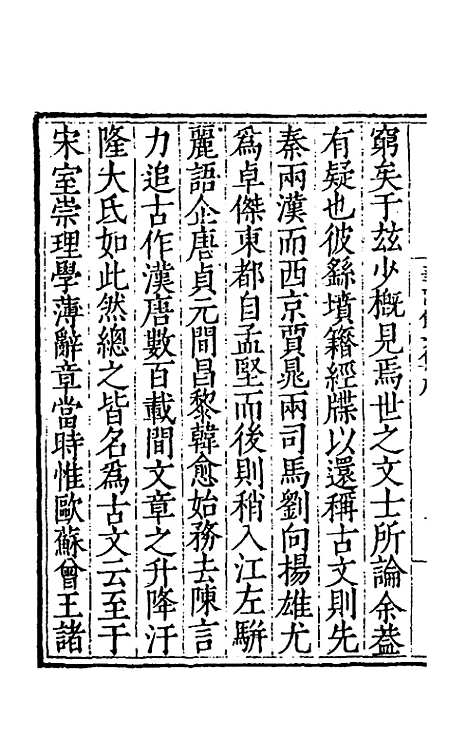 窮矣于兹少槪見焉世之文士所論余葢
有疑也彼繇墳籍經牒以還稱古文則先
秦兩漢而西京賈晁兩司馬劉向揚雄尤
爲卓傑東都自孟堅而後則稍入江左駢
麗語企唐貞元間昌黎韓愈始務去陳言
力追古作漢唐數百載間文章之升降汙
隆大氐如此然總之皆名爲古文云至于
宋室崇理學薄辭章當時惟歐蘇曾王諸